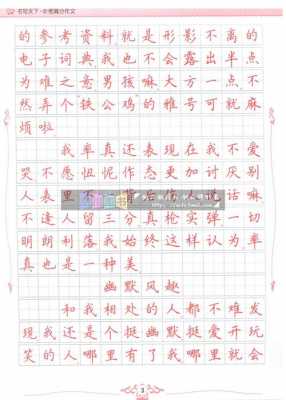 书写天下·中考满分作文
的参考资料就是形影不离的
电子词典我也不会露出半点
为难之意男孩嘛大方一点不
然弄个“铁公鸡”的雅号可就麻
烦啦
我率真还表现在我不爱
哭不愿忸怩作态更加讨厌别
人表里不一背后伤人说话嘛
不逢人留三分真枪实弹一切
明朗利落我始终这样认为率
真也是一种美
幽默风趣
和我相处的人都不难发
现我还是个挺幽默挺爱开玩
笑的人哪里有了我哪里就会
3